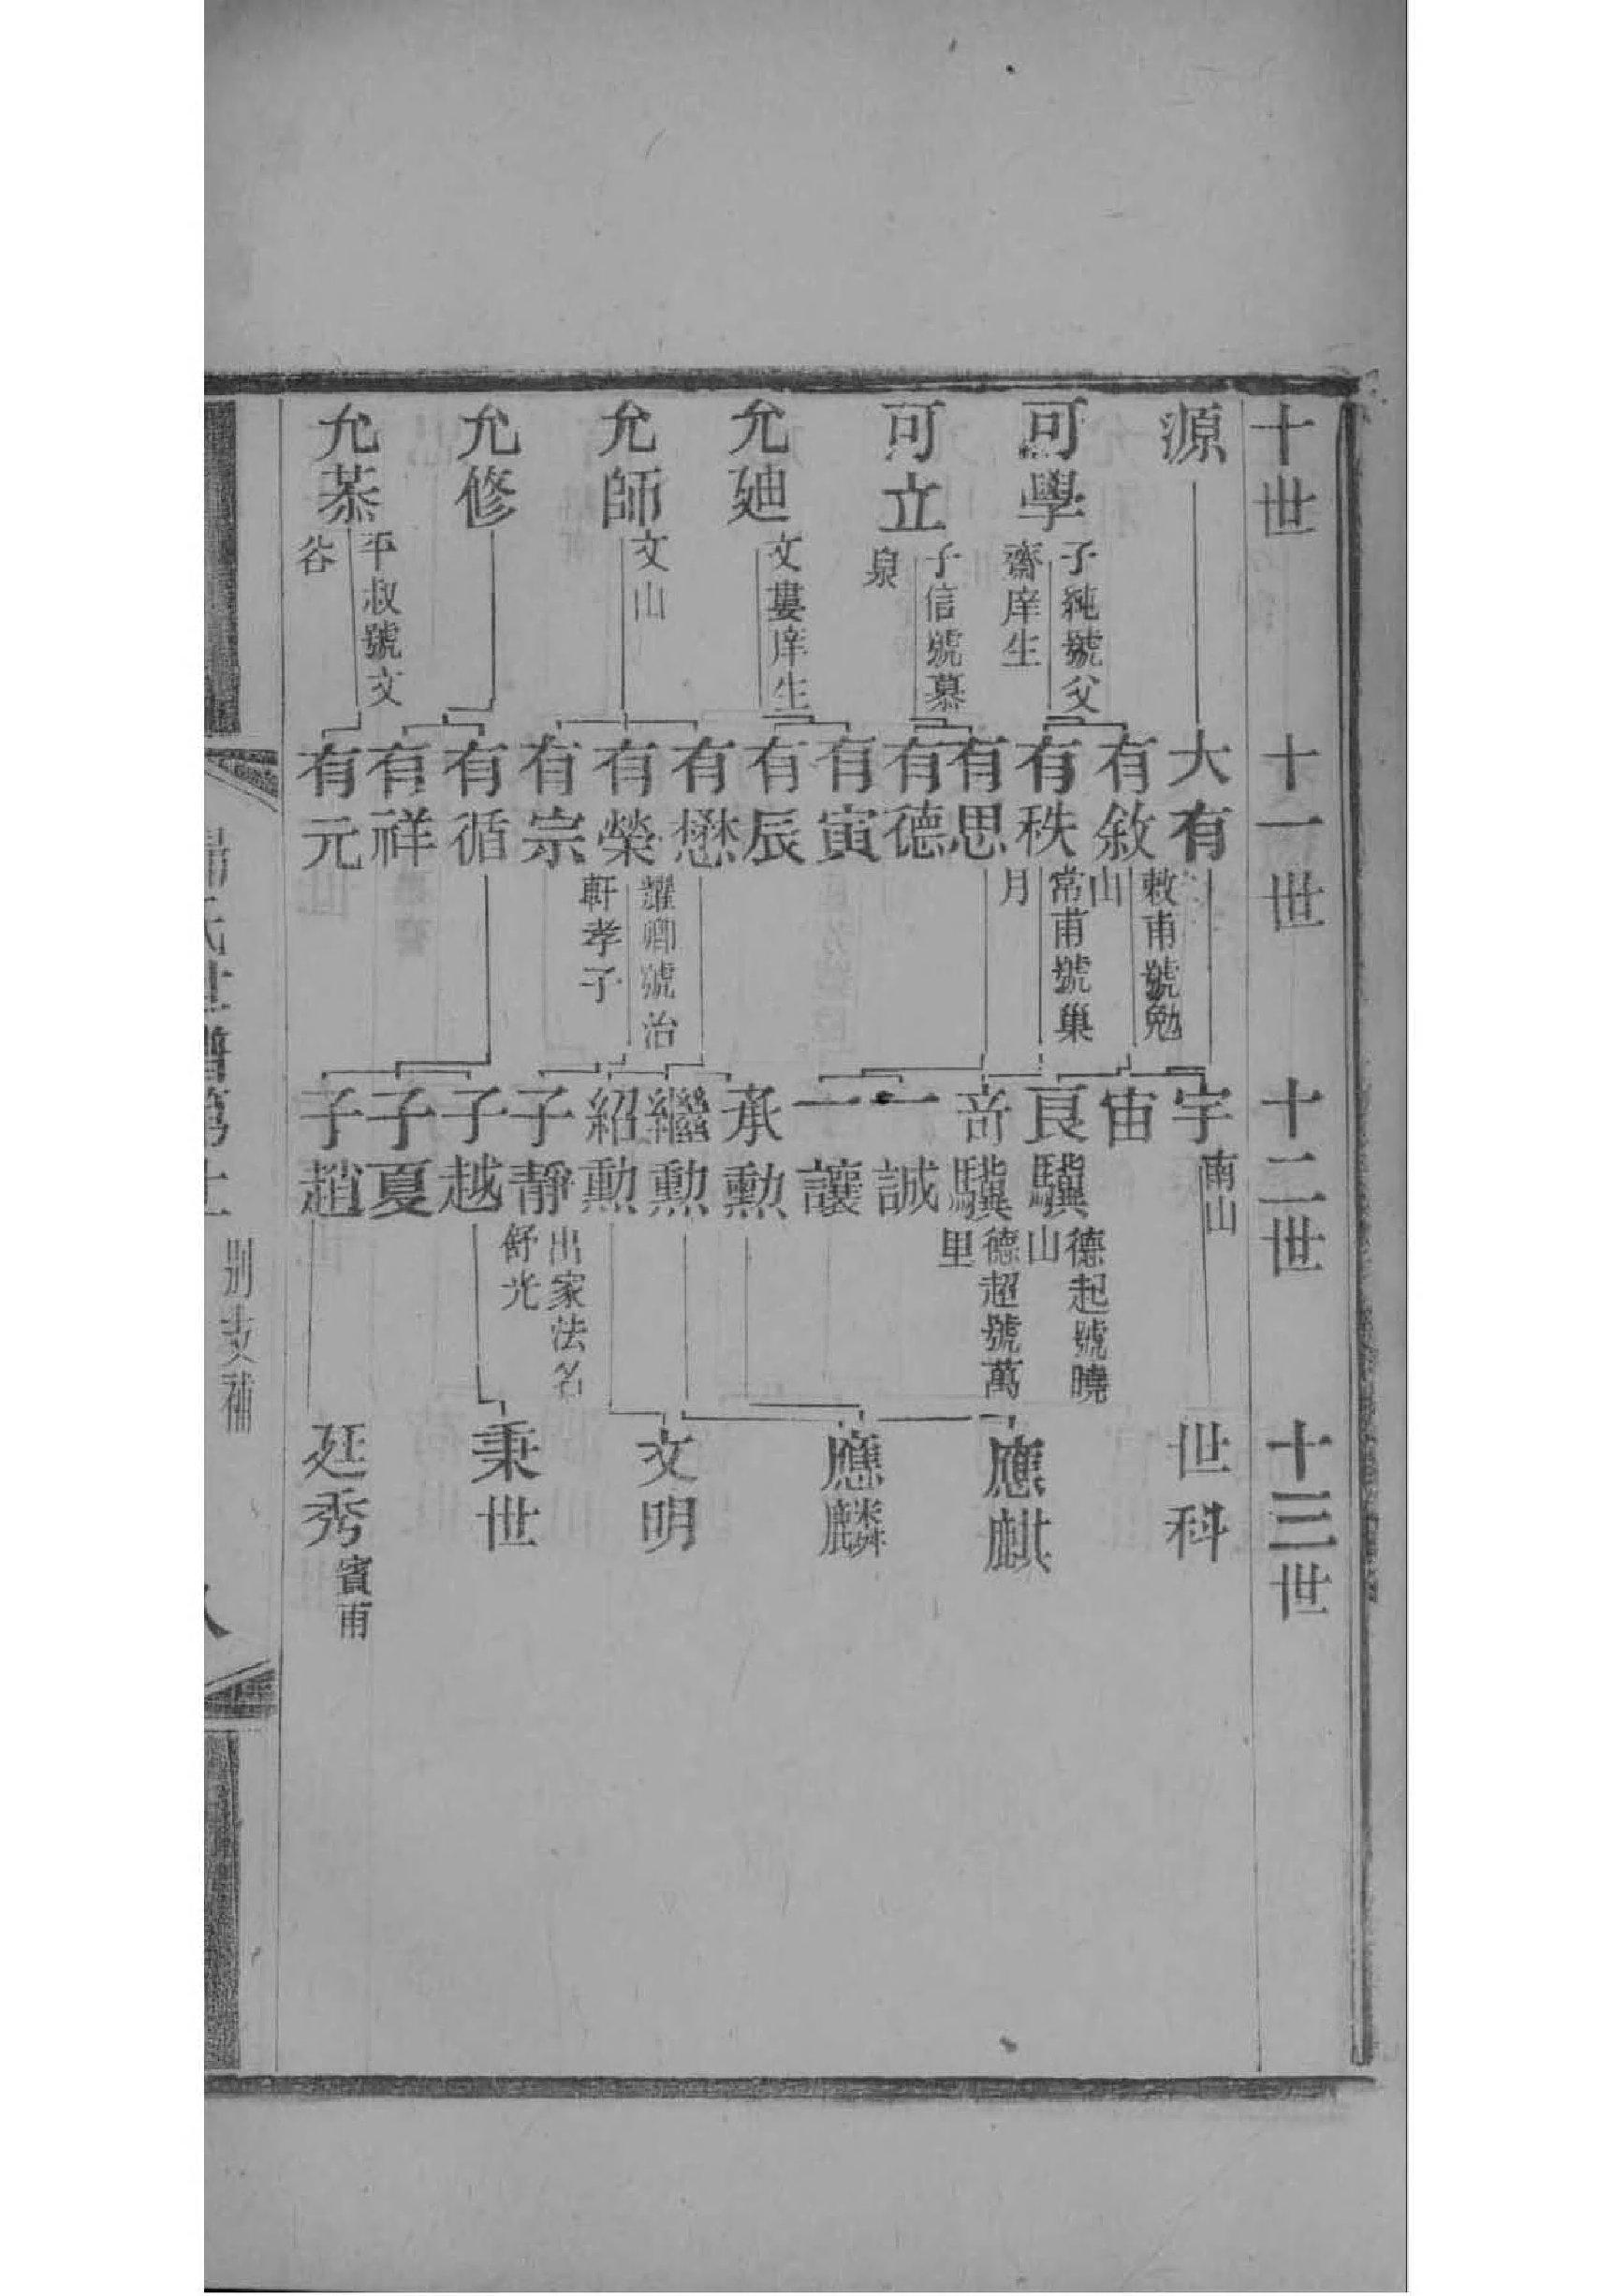 十世
十一世
十二世
十三世
源
可學
子純號父
齋庠生
可立
子信號慕
泉
允迪
文婁庠生
允師
文山
允修
允恭
平叔號文
谷
大有
有敘
敕甫號勉
山
有秩
常甫號巢
月
有思
有德
有寅
有辰
有懋
有榮
耀卿號治
軒孝子
有宗
有循
有祥
有元
宇
南山
宙
良驥
德起號曉
山
奇驥
德超號萬
里
一誠
一讓
承勲
繼勲
紹勲
子靜
出家法名
舒光
子越
子夏
子趙
世科
應麒
應麟
文明
秉世
廷秀
賓甫
歸氏世譜第
別支補
八